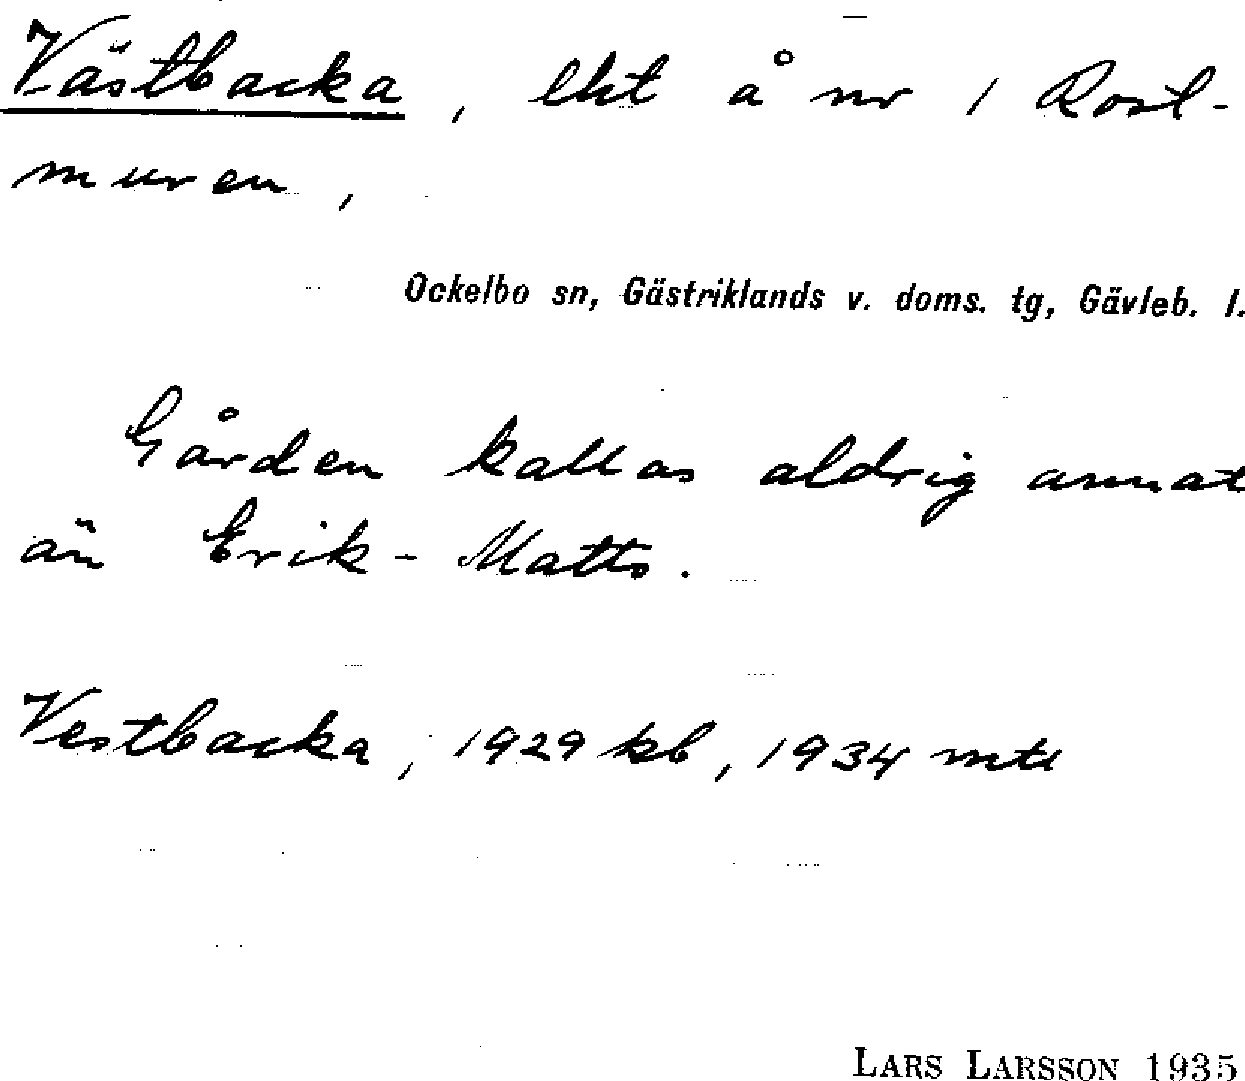 Västbacka, lht å nr 1 Rosl-
muren,
Ockelbo sn, Gästriklands v. doms. tg, Gävleb. l.
Gården kallas aldrig annat
än Erik-Matts.
Vestbacka, 1929 kb, 1934 mtl
LARS LARSSON 1935